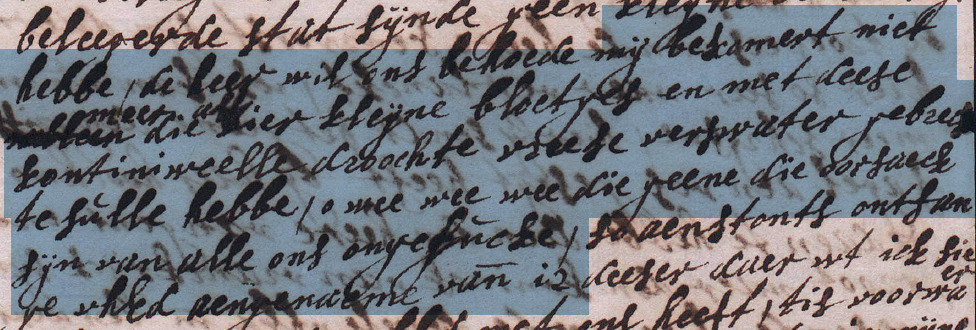 beleegerde stat sÿnde geen kleÿne
hebbe / de heer wil ons behoede mÿ bekomert niet
meer als
die vier kleÿne bloetges en met deese
kontiniweelle droochte vreese verswater gebreck
te sulle hebbe / o wee wee wee die geene die oorsaeck
sÿn van alle ons ongelucke / so aenstonts ontfan
ge uhEd aengenaeme van 12 deeser daer ut ick sie
met ons heeft / tis voorwa